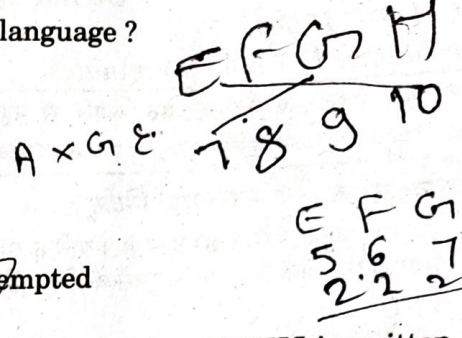 language ?
E F G H
7 8 9 10
A × G E
E F G
5 6 7
2 2 2
empted